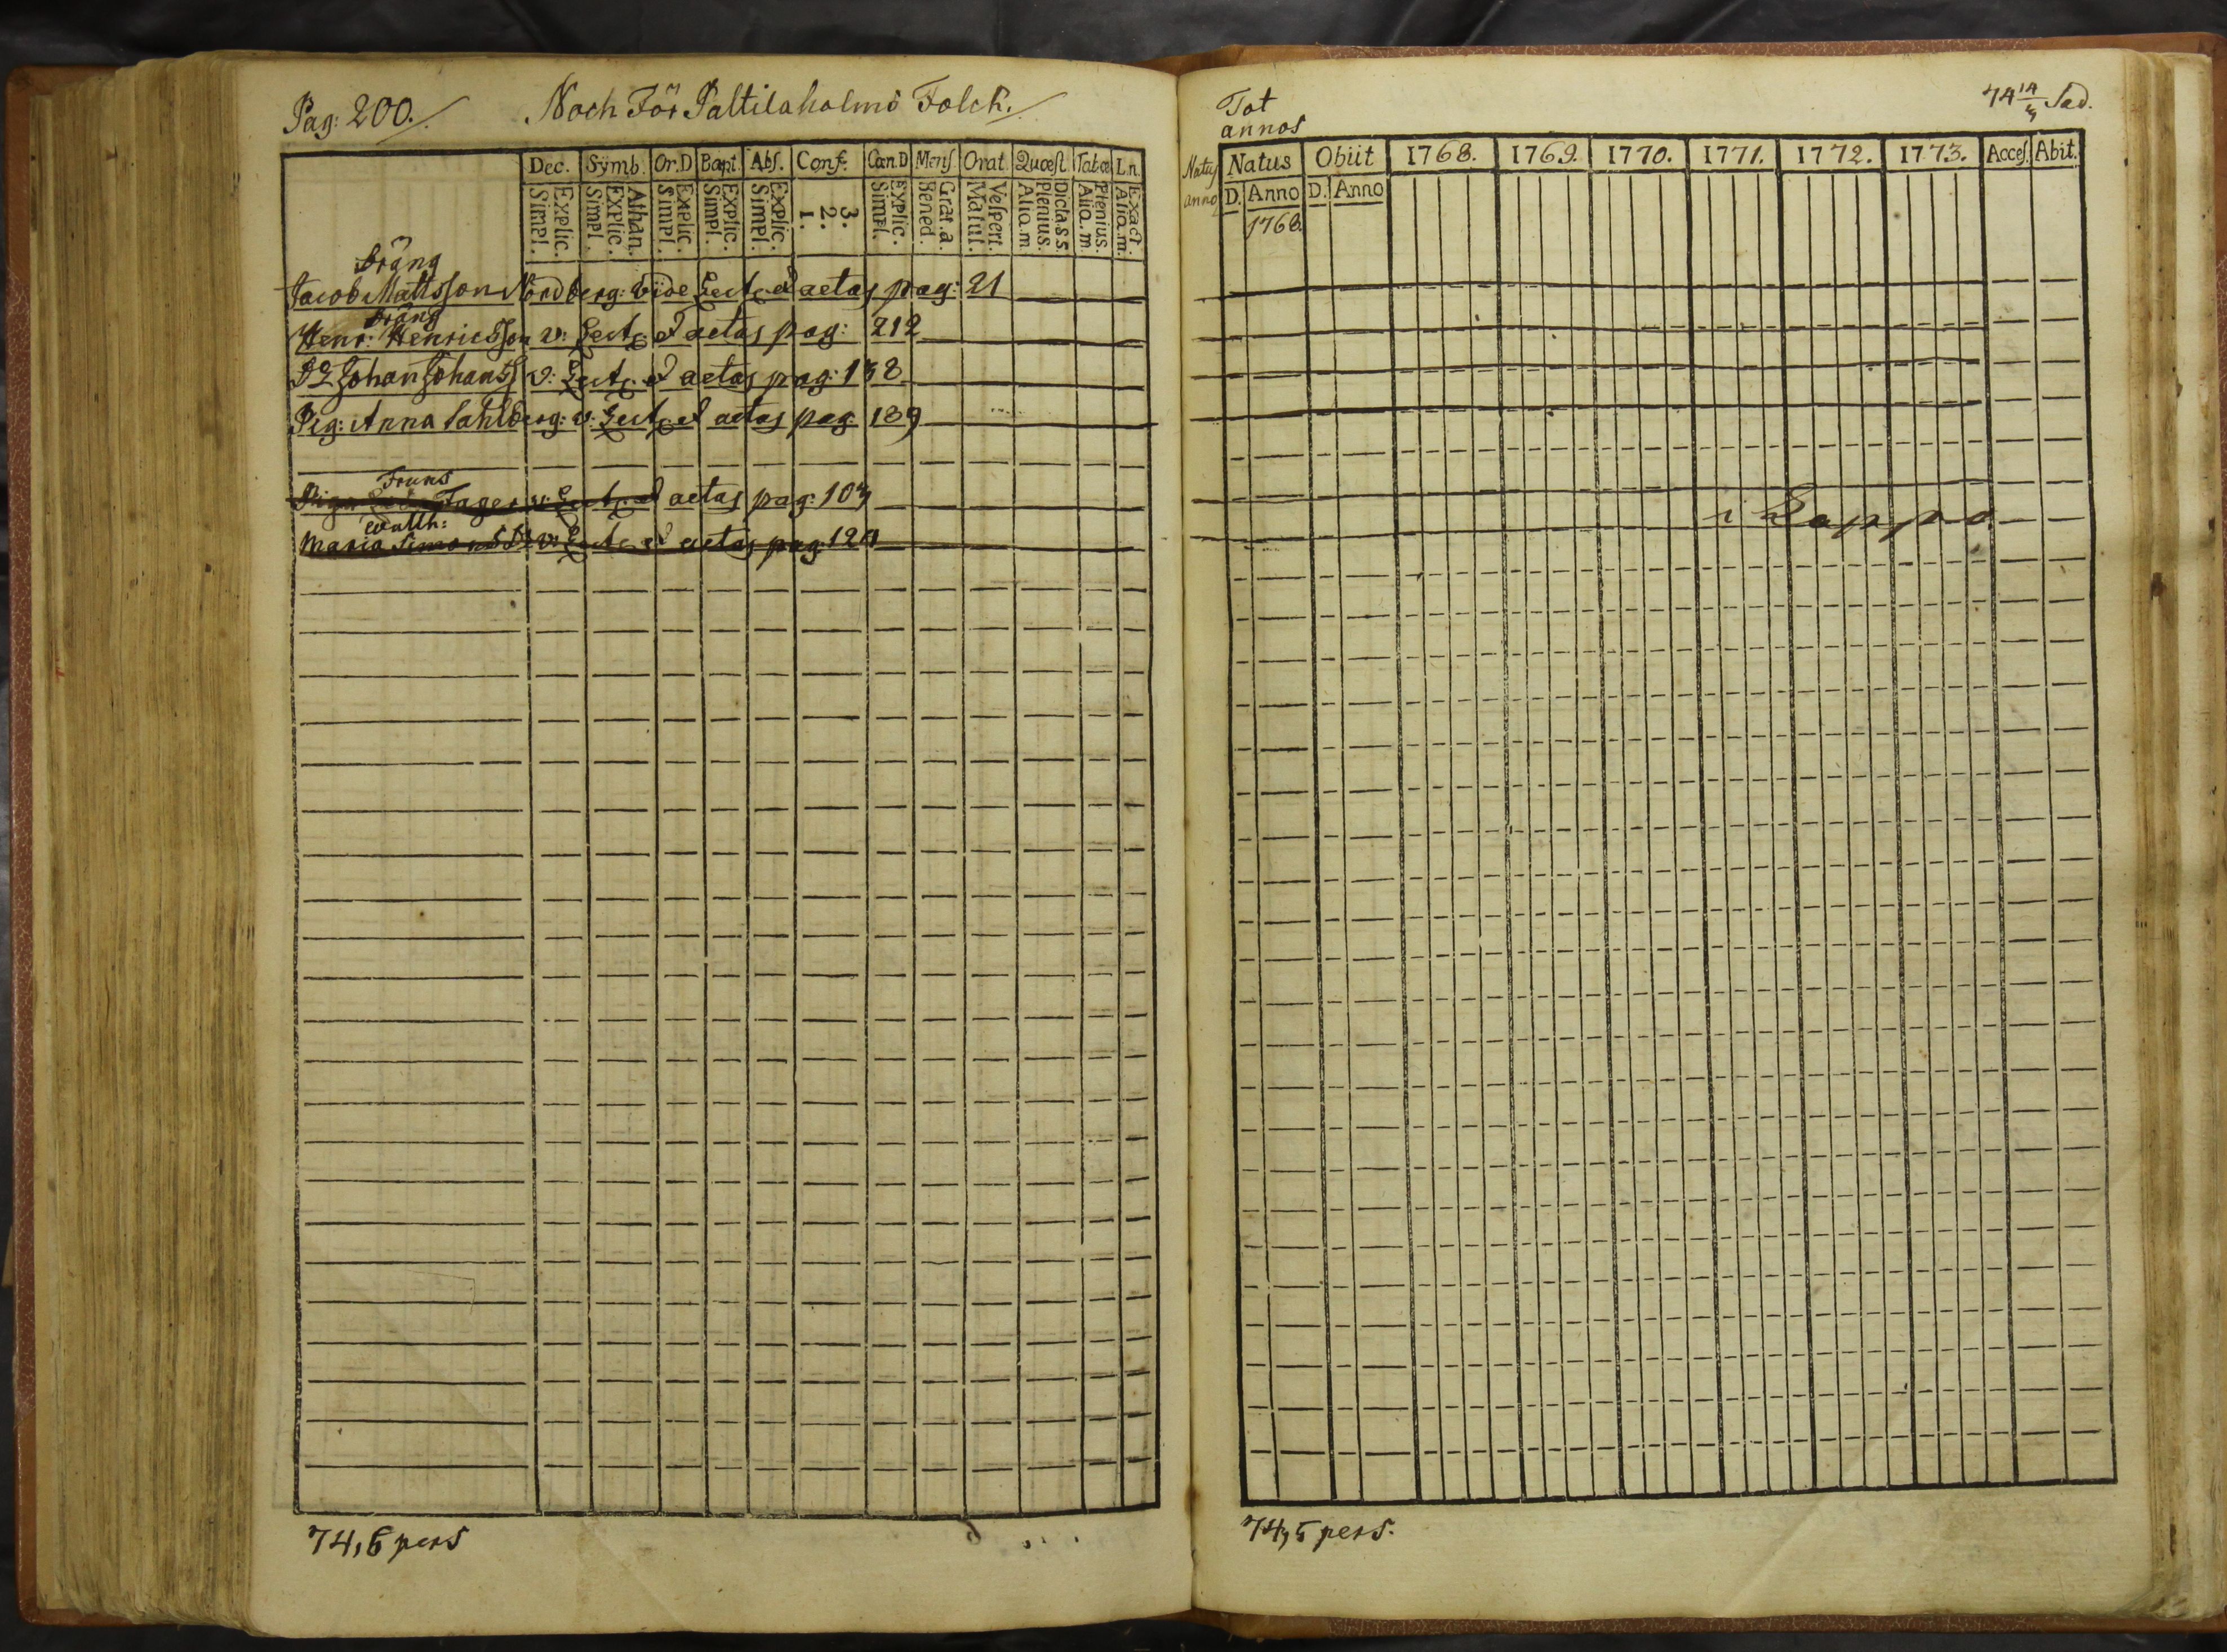 Pag: 200.
Noch För Paltilaholms Folck.
Dec. Symb. Or.D Bapt. Abs. Conf. Cœn.D Mens Orat. Quæst. Tab.œ L.n.
Simpl. Explic. Simpl. Explic. Athan. Simpl. Explic. Simpl. Explic. Simpl. Explic. 1. 2. 3. Simpl. Explic. Bened. Grat.a. Matut. Vespert. Aliq.m. Plenius. Dicta.s.s. Aliq.m. Plenius. Aliq.m. Exact.
Dräng
Jacob Mattsson Nordberg: vide Lect. et aetas pag: 21
Dräng
Henr: Henricsson v: Lect. et aetas pag: 212
Johan Johansss v: Lect. et aetas pag: 138
Pig: Anna Sahlberg: v: Lect. et aetas pag 189
Fruns
Piga Fager v: Lect. et aetas pag: 103
Maria Simonsdr v: Lect. et aetas pag: 120
74,6 pers
Tot
annos
Natus
anno
Natus Obiit 1768. 1769. 1770. 1771. 1772. 1773. Acces. Abit.
D. Anno D. Anno
1768.
i Lappo
74,5 pers.